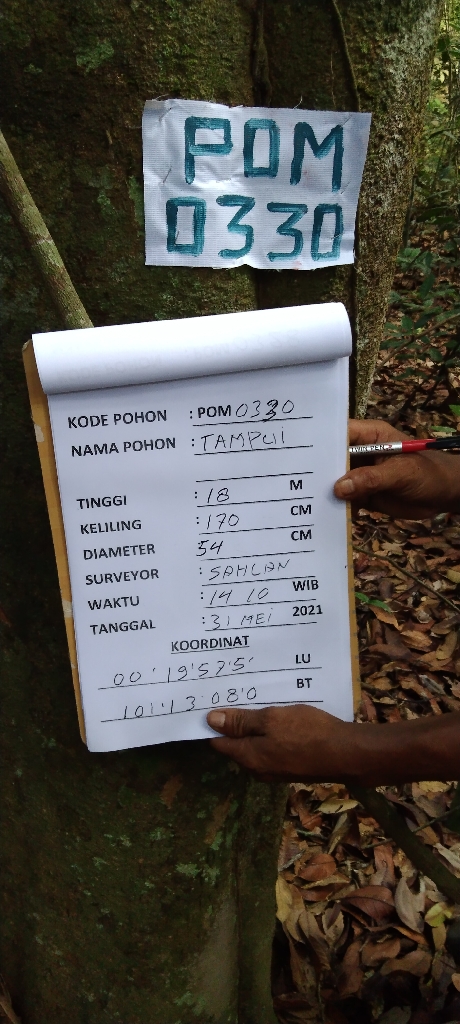 POM
0330
KODE POHON : POM 0330
NAMA POHON : TAMPUI
TINGGI : 18 M
KELILING : 170 CM
DIAMETER 54 CM
SURVEYOR : SAHLAN
WAKTU : 14 10 WIB
TANGGAL : 31 MEI 2021
KOORDINAT
00'19'57'5' LU
101'13'08'0 BT
TWIN PEN